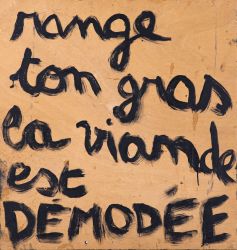 range
ton gras
la viande
est
DÉMODÉE